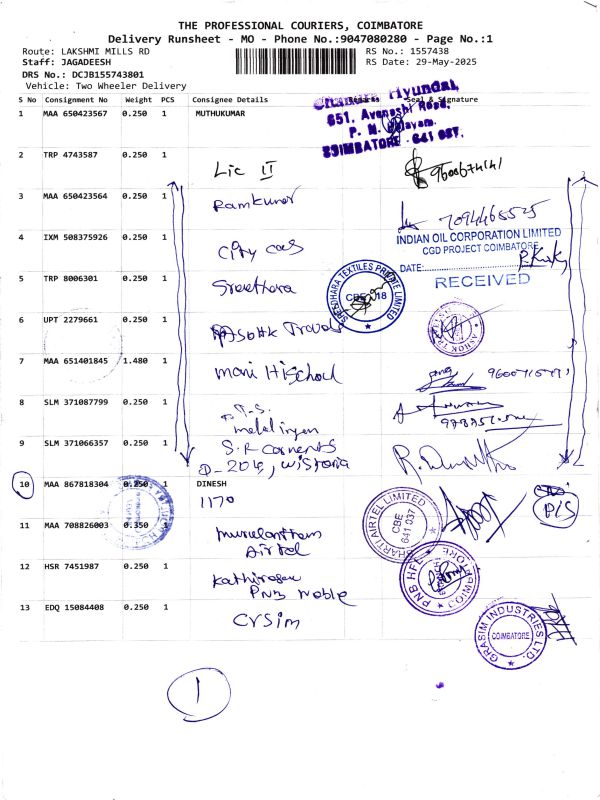 THE PROFESSIONAL COURIERS, COIMBATORE
Delivery Runsheet - MO - Phone No.:9047080280 - Page No.:1
Route: LAKSHMI MILLS RD
RS No.: 1557438
Staff: JAGADEESH
RS Date: 29-May-2025
DRS No.: DCJB155743801
Vehicle: Two Wheeler Delivery
S No Consignment No Weight PCS Consignee Details Remarks Seal & Signature
Hyundai,
1 MAA 650423567 0.250 1 MUTHUKUMAR
651, Avanashi Road,
P. N. Palayam,
COIMBATORE - 641 037.
2 TRP 4743587 0.250 1
Lic II
9600674141
3 MAA 650423564 0.250 1
Ramkumar
7094468525
4 IXM 508375926 0.250 1
City cas
INDIAN OIL CORPORATION LIMITED
CGD PROJECT COIMBATORE
DATE:
5 TRP 8006301 0.250 1
Sreethara
SREEDHARA TEXTILES PRIVATE LIMITED
CBE 18
RECEIVED
6 UPT 2279661 0.250 1
Ashok Travels
ASHOK
7 MAA 651401845 1.480 1
mani Hischool
8 SLM 371087799 0.250 1
9 SLM 371066357 0.250 1
S.R
D-204, wistoria
10 MAA 867818304 0.250 1 DINESH
1170
11 MAA 708826003 0.350 1
Airtel
BHARTI AIRTEL LIMITED
CBE
641 037
12 HSR 7451987 0.250 1
Kathiresan
PNB
PNB HFL
13 EDQ 15084408 0.250 1
GRASIM INDUSTRIES LTD.
COIMBATORE
1